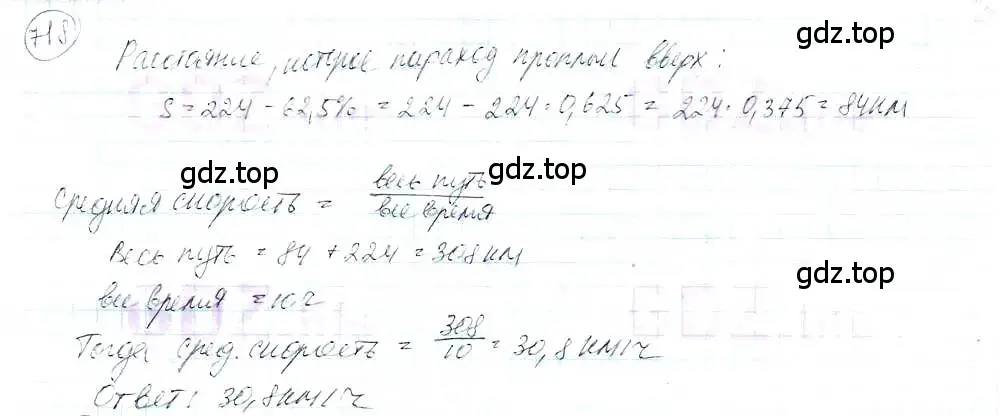 718
gdz.top
Расстояние, которое пароход проплыл вверх:
S = 224 - 62,5% = 224 - 224 · 0,625 = 224 · 0,375 = 84 км
gdz.top gdz.top
средняя скорость = весь путь / все время
Весь путь = 84 + 224 = 308 км
gdz.top gdz.top
все время = 10 ч
Тогда сред. скорость = 308/10 = 30,8 км/ч
gdz.top
Ответ: 30,8 км/ч